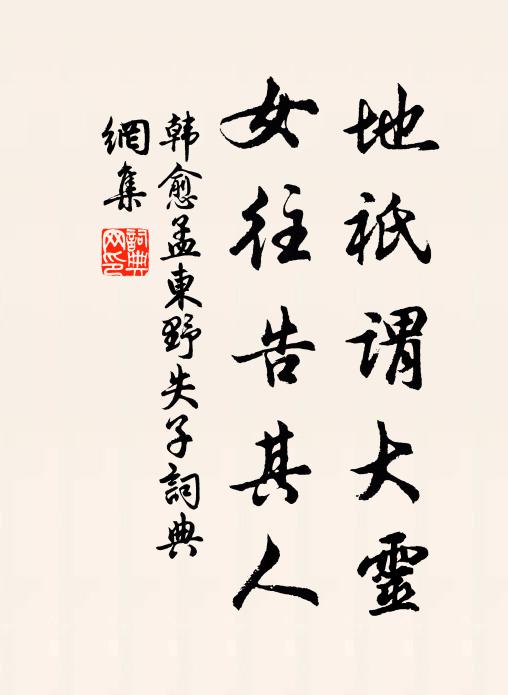 地祇謂大靈
女往告其人
韩愈孟東野失子詞典
網集
詞典
网印